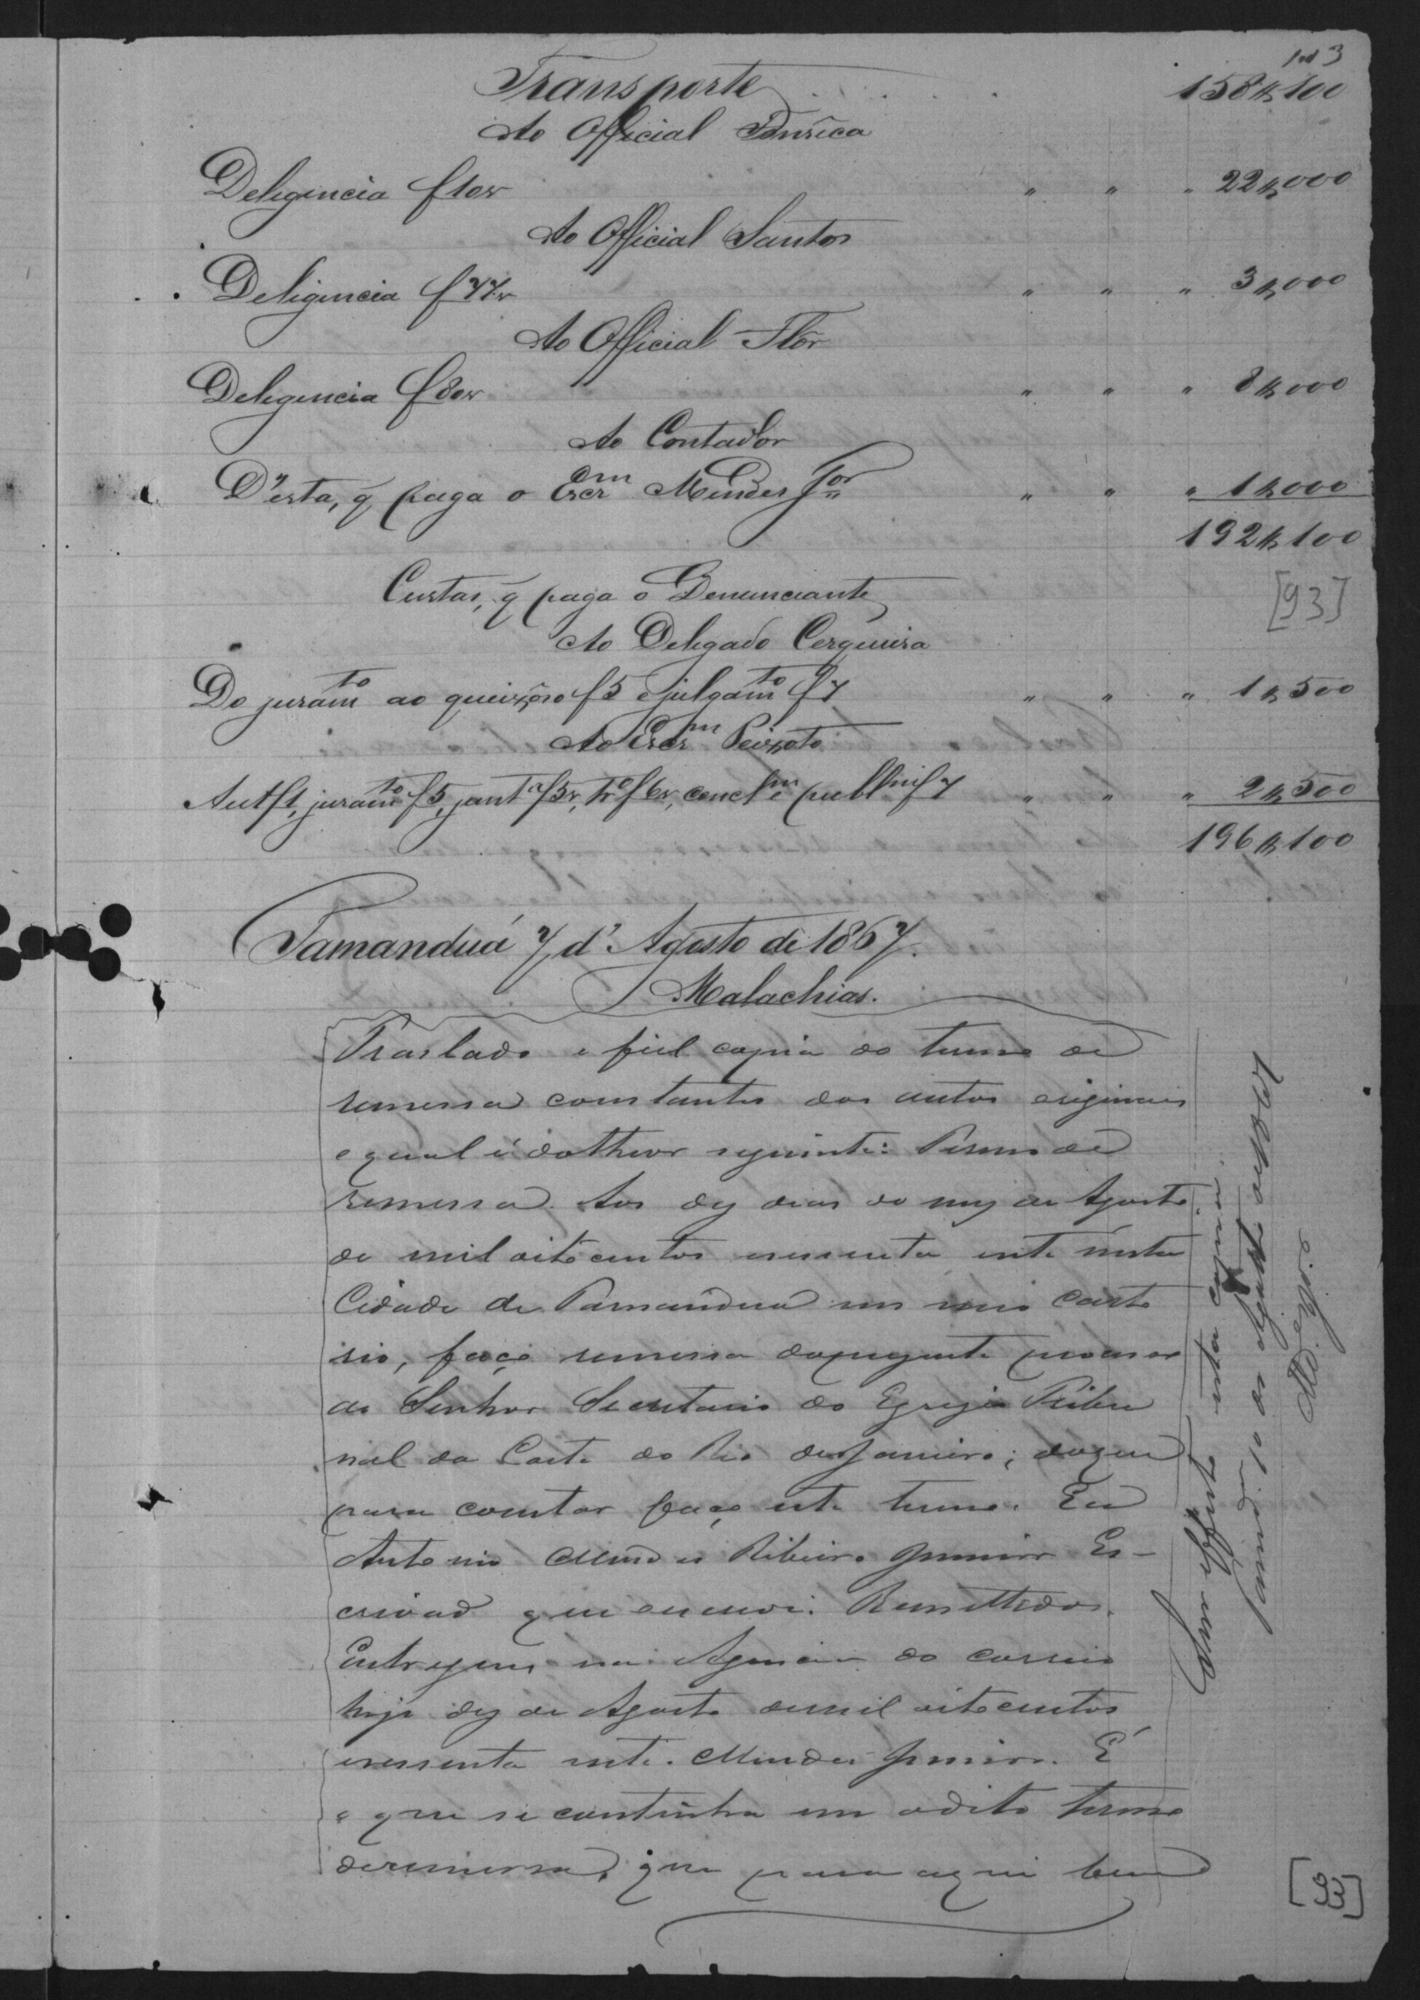 Transporte 158$100
Ao Official Fonseca
Deligencia f 10v " " " 22$000
Ao Official Santos
Deligencia f 77v " " " 3$000
Ao Official Flôr
Deligencia f 80v " " " 8$000
Ao Contador
D'esta, q̃ paga o Escr.m Mendes J.or " " " 1$000
192$100
[93]
Custas, q̃ paga o Denunciante
Ao Delegado Cerqueira
Do juram.to ao queixoso f 5 e julgam.to f 7 " " " 1$500
Ao Escr.m Peixoto
Aut f 1, juram.to f 5, f 5v, f 6v, f 7 " " " 2$500
196$100
Tamanduá 7 d'Agosto de 1867.
Malachias.
Traslado e fiel copia do termo de
remessa constantes dos autos originaes
o qual é do theor seguinte: Termo de
remessa. Aos dez dias do mez de Agosto
de mil oito centos e sessenta e sete nesta
Cidade de Tamanduá em meu carto
rio, faço remessa do presente processo
ao Senhor Secretario do Egregio Tribu
nal da Corte do Rio de Janeiro; do que
para constar faço este termo. Eu
Antonio Mendes Ribeiro Junior Es-
crivaõ que escrevi. Remettidos.
Entreguei na Agencia do correio
hoje dez de Agosto de mil oito centos
e sessenta e sete. Mendes Junior. É
o que se continha em o dito termo
de remessa, que para aqui bem
esta copia
Tamand. 10 de Agosto de 1867
[93]